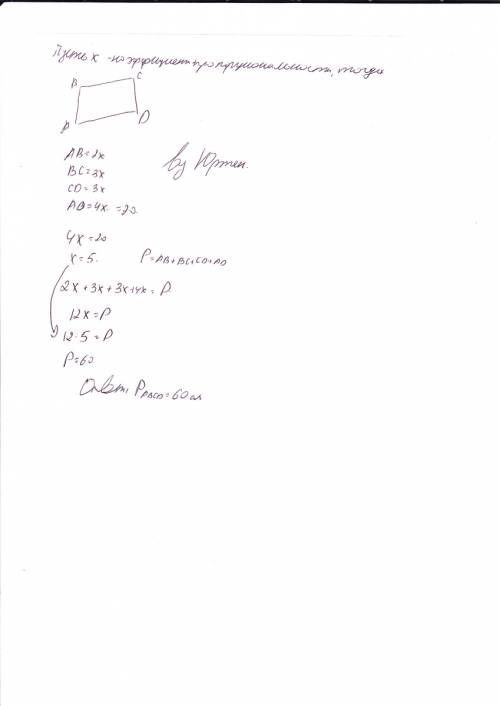 Пусть x - коэффициент пропорциональности, тогда
B C
A D
AB=2x
BC=3x
CD=3x
AD=4x =20
by Юртен.
4x=20
x=5. P=AB+BC+CD+AD
2x+3x+3x+4x=P
12x=P
12·5=P
P=60
Ответ: P ABCD=60 см